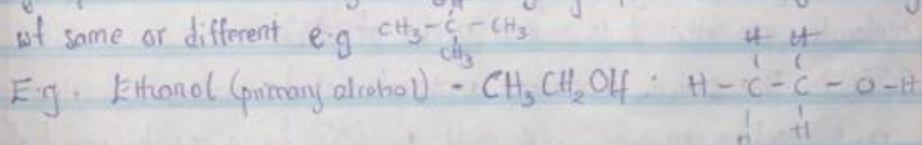 of same or different e.g CH3-C-CH3
CH3
E.g. Ethanol (primary alcohol) - CH3CH2OH. H-C-C-O-H
H H
H H